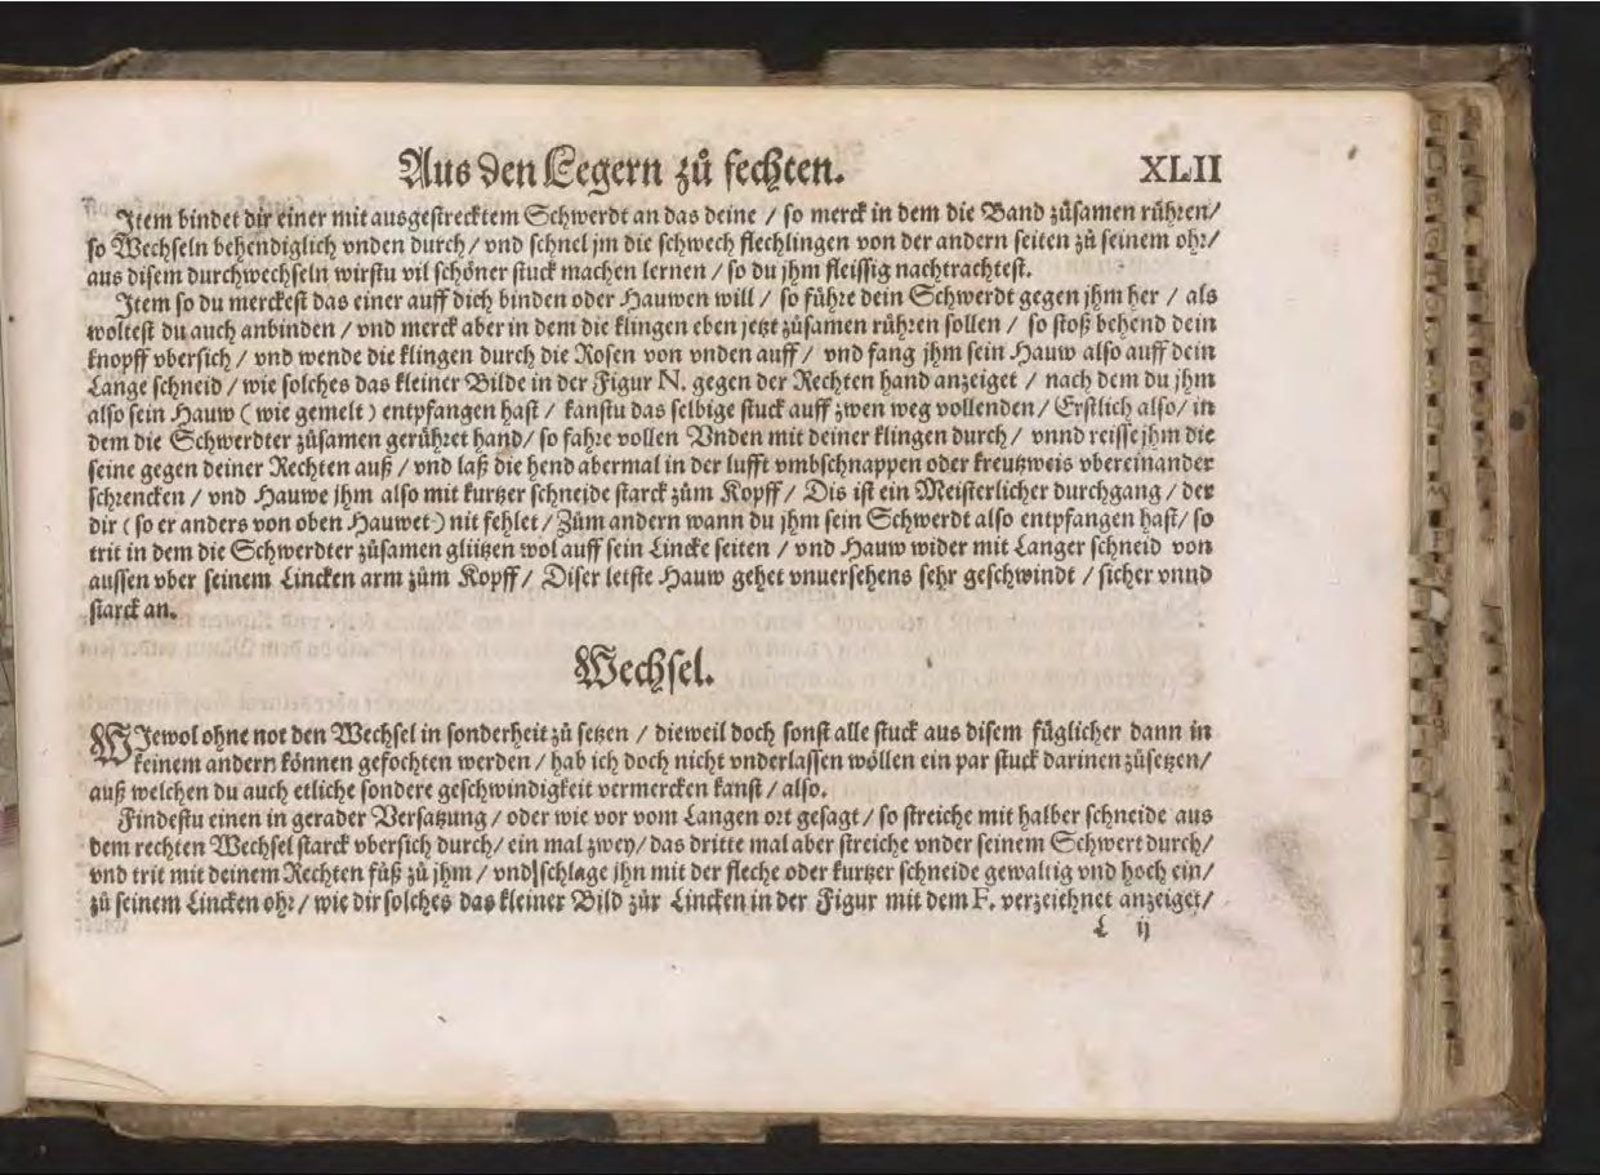 Aus den Legern zů fechten. XLII
Item bindet dir einer mit ausgestrecktem Schwerdt an das deine / so merck in dem die Band zůsamen rühren/
so Wechseln behendiglich vnden durch / vnd schnel jm die schwech flechlingen von der andern seiten zů seinem ohr/
aus disem durchwechseln wirstu vil schöner stuck machen lernen / so du jhm fleissig nachtrachtest.
Item so du merckest das einer auff dich binden oder Hauwen will / so führe dein Schwerdt gegen jhm her / als
woltest du auch anbinden / vnd merck aber in dem die klingen eben jetzt zůsamen rühren sollen / so stoß behend dein
knopff vbersich / vnd wende die klingen durch die Rosen von vnden auff / vnd fang jhm sein Hauw also auff dein
Lange schneid / wie solches das kleiner Bilde in der Figur N. gegen der Rechten hand anzeiget / nach dem du jhm
also sein Hauw (wie gemelt) entpfangen hast / kanstu das selbige stuck auff zwen weg vollenden / Erstlich also / in
dem die Schwerdter zůsamen gerühret hand/ so fahre vollen Vnden mit deiner klingen durch / vnnd reisse jhm die
seine gegen deiner Rechten auß / vnd laß die hend abermal in der lufft vmbschnappen oder kreutzweis vbereinander
schrencken / vnd Hauwe jhm also mit kurtzer schneide starck zům Kopff / Dis ist ein Meisterlicher durchgang / der
dir (so er anders von oben Hauwet) nit fehlet / Zům andern wann du jhm sein Schwerdt also entpfangen hast/ so
trit in dem die Schwerdter zůsamen glützen wol auff sein Lincke seiten / vnd Hauw wider mit Langer schneid von
aussen vber seinem Lincken arm zům Kopff / Diser letste Hauw gehet vnuersehens sehr geschwindt / sicher vnnd
starck an.
Wechsel.
WJewol ohne not den Wechsel in sonderheit zů setzen / dieweil doch sonst alle stuck aus disem füglicher dann in
keinem andern können gefochten werden / hab ich doch nicht vnderlassen wöllen ein par stuck darinen zůsetzen/
auß welchen du auch etliche sondere geschwindigkeit vermercken kanst / also.
Findestu einen in gerader Versatzung / oder wie vor vom Langen ort gesagt / so streiche mit halber schneide aus
dem rechten Wechsel starck vbersich durch/ ein mal zwey/ das dritte mal aber streiche vnder seinem Schwert durch/
vnd trit mit deinem Rechten fůß zů jhm / vnd schlage jhn mit der fleche oder kurtzer schneide gewaltig vnd hoch ein/
zů seinem Lincken ohr / wie dir solches das kleiner Bild zůr Lincken in der Figur mit dem F. verzeichnet anzeiget/
L ij